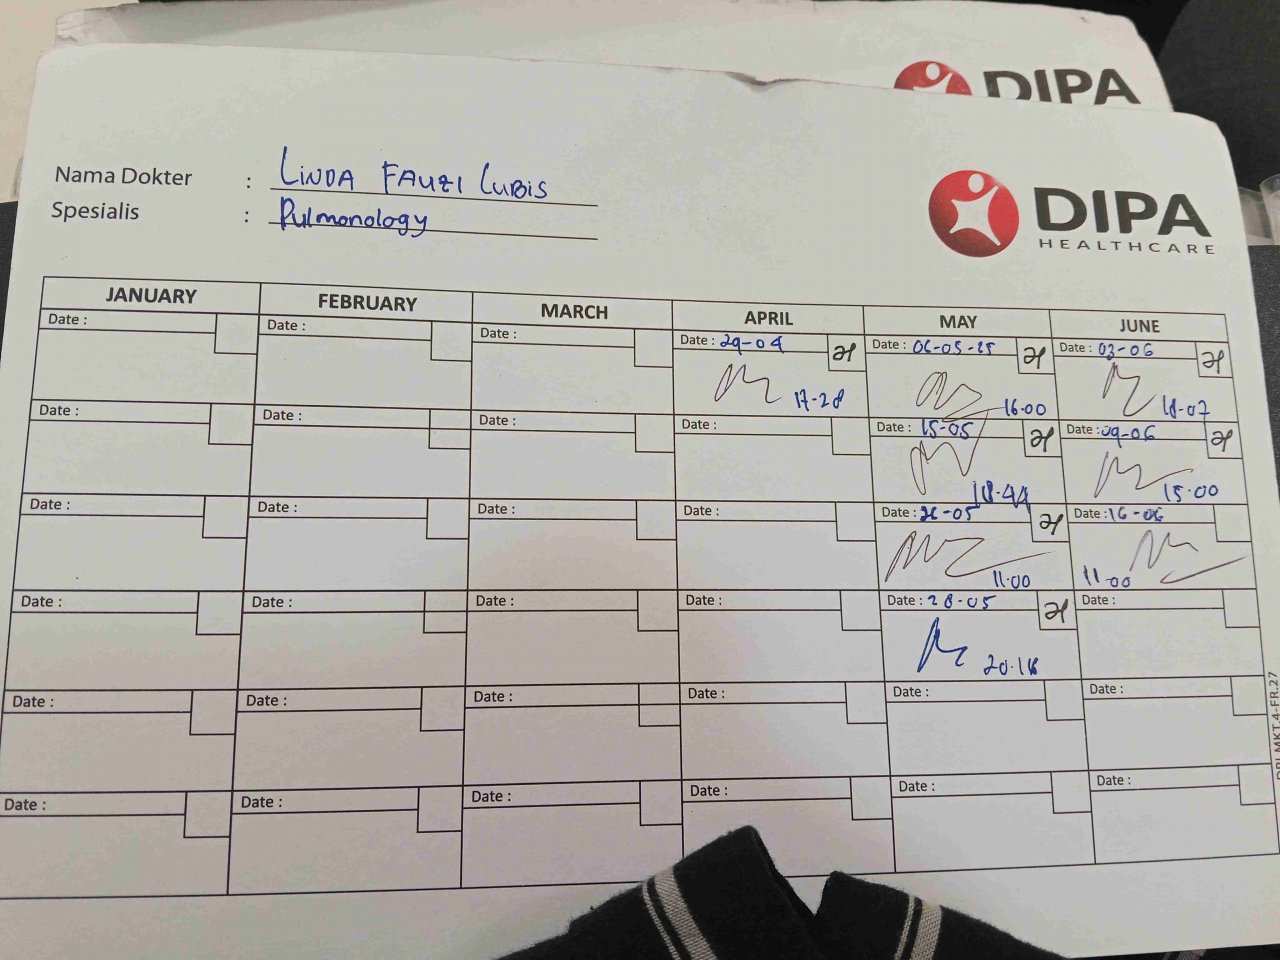 DIPA
Nama Dokter : LINDA FAUZI LUBIS
Spesialis : Pulmonology
DIPA
HEALTHCARE
JANUARY FEBRUARY MARCH APRIL MAY JUNE
Date : Date : Date : Date : 29-04 Date : 06-05-25 Date : 03-06
17-28 16-00 18-07
Date : Date : Date : Date : Date : 15-05 Date : 09-06
18-44 15-00
Date : Date : Date : Date : Date : 26-05 Date : 16-06
11-00 11-00
Date : Date : Date : Date : Date : 28-05 Date :
Date : Date : Date : Date : Date : Date :
Date : Date : Date : Date : Date : Date :